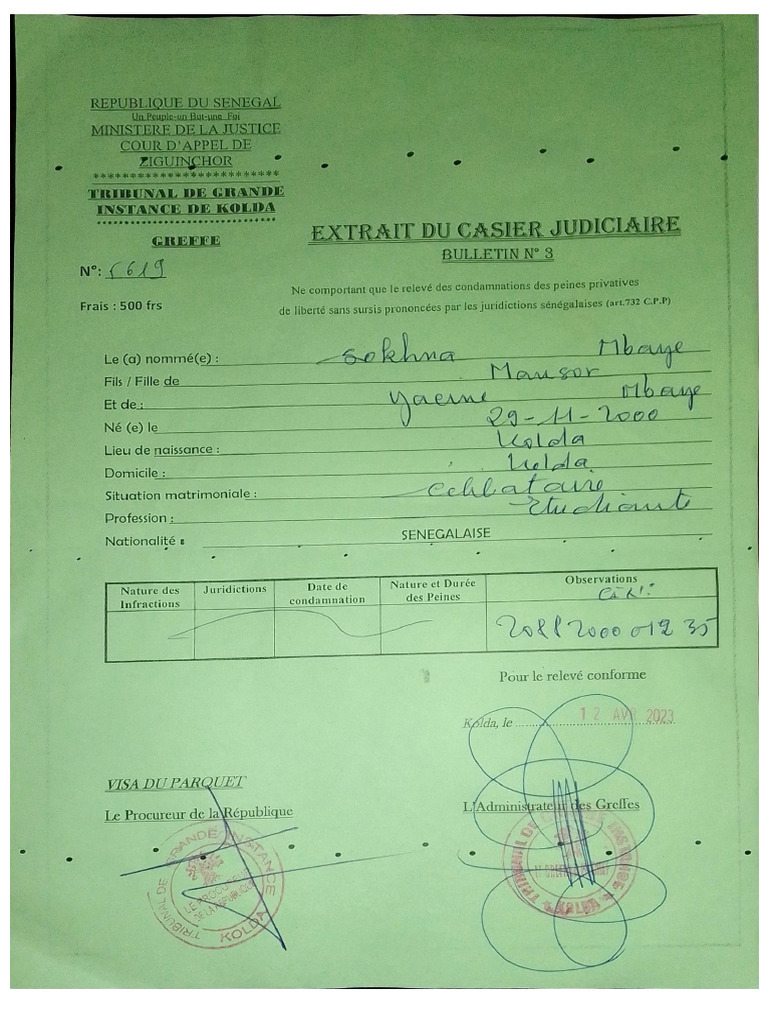 REPUBLIQUE DU SENEGAL
Un Peuple-un But-une Foi
MINISTERE DE LA JUSTICE
COUR D'APPEL DE
ZIGUINCHOR
**************************
TRIBUNAL DE GRANDE
INSTANCE DE KOLDA
**************************
GREFFE
N°: 5619
Frais : 500 frs
EXTRAIT DU CASIER JUDICIAIRE
BULLETIN N° 3
Ne comportant que le relevé des condamnations des peines privatives
de liberté sans sursis prononcées par les juridictions sénégalaises (art.732 C.P.P)
Le (a) nommé(e) : Sokhna Mbaye
Fils / Fille de Mansor
Et de : Yacine Mbaye
Né (e) le 29-11-2000
Lieu de naissance : Kolda
Domicile : Kolda
Situation matrimoniale : Celibataire
Profession : Etudiante
Nationalité : SENEGALAISE
Nature des Infractions Juridictions Date de condamnation Nature et Durée des Peines Observations
CNI:
208 2000 01235
Pour le relevé conforme
Kolda, le 12 AVR 2023
VISA DU PARQUET
Le Procureur de la République
L'Administrateur des Greffes
TRIBUNAL DE GRANDE INSTANCE
LE PROCUREUR
DE LA REPUBLIQUE
KOLDA
TRIBUNAL DE GRANDE INSTANCE
KOLDA